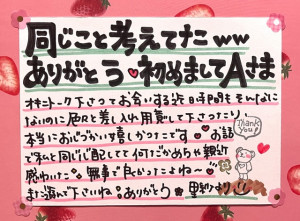 同じこと考えてたww
ありがとう♥初めましてAさま
オキニトーク下さってお会いする迄時間もそんなに
ないのに色々と差し入れ用意して下さったり
本当におどろかい嬉しかったです♥お話
で私と同じ配してて何だかめちゃ親近
感わいた 無事で良かったよねー♡
また遊んで下さいね ありがとう
Thank You!